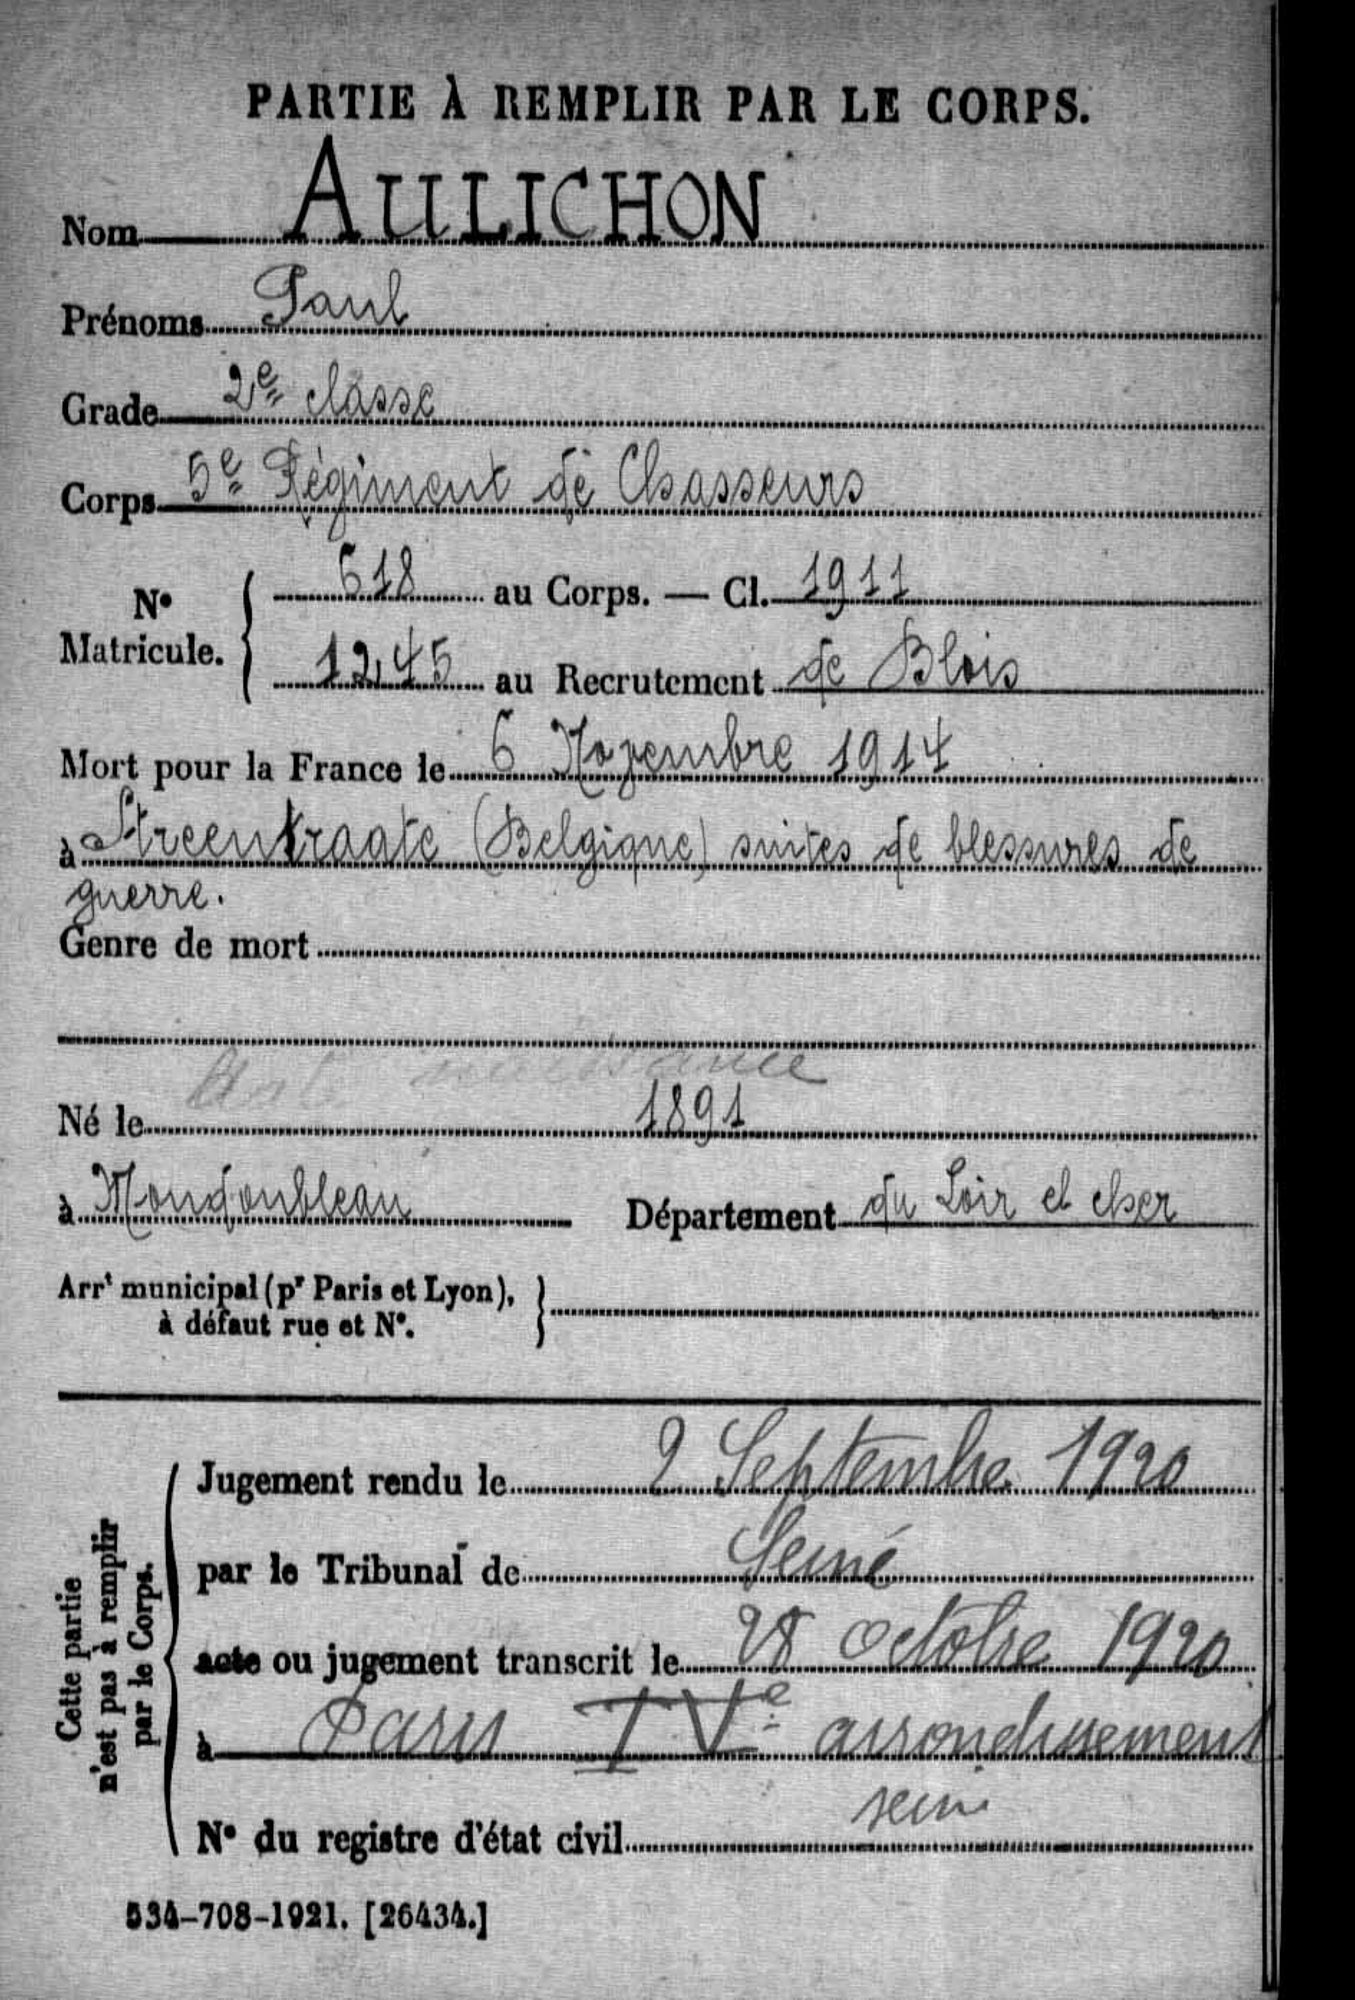 PARTIE À REMPLIR PAR LE CORPS.
Nom AULICHON
Prénoms Paul
Grade 2e classe
Corps 5e Régiment de Chasseurs
N° Matricule. { 618 au Corps. — Cl. 1911
1245 au Recrutement de Blois
Mort pour la France le 6 Novembre 1914
à Streentraate (Belgique) suites de blessures de
guerre.
Genre de mort
naissance
Né le 1891
à Mondoubleau Département du Loir et cher
Arrt municipal (pr Paris et Lyon), à défaut rue et N°. }
Cette partie n'est pas à remplir par le Corps.
Jugement rendu le 2 Septembre 1920
par le Tribunal de Seine
acte ou jugement transcrit le 28 octobre 1920
à Paris IVe arrondissement
seine
N° du registre d'état civil
534-708-1921. [26434.]